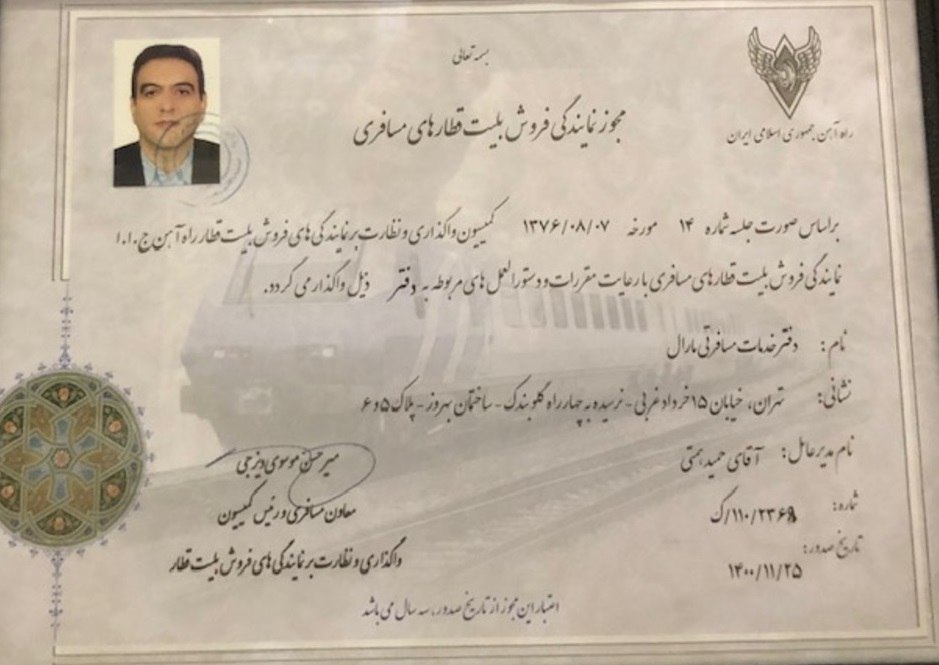 بسمه تعالی
راه آهن جمهوری اسلامی ایران
مجوز نمایندگی فروش بلیت قطارهای مسافری
براساس صورت جلسه شماره ۱۴ مورخه ۱۳۷۶/۰۸/۰۷ کمیسیون واگذاری و نظارت بر نمایندگی های فروش بلیت قطار راه آهن ج.ا.ا
نمایندگی فروش بلیت قطارهای مسافری با رعایت مقررات و دستورالعمل های مربوطه به دفتر ذیل واگذار می گردد.
نام: دفتر خدمات مسافرتی مارال
نشانی: تهران، خیابان ۱۵ خرداد غربی - نرسیده به چهارراه گلوبندک - ساختمان بهروز - پلاک ۵ و ۶
نام مدیرعامل: آقای حمید همتی
شماره: ک/۱۱۰/۲۳۶۹
تاریخ صدور:
۱۴۰۰/۱۱/۲۵
میرحسن موسوی ویزجی
معاون مسافری و رئیس کمیسیون
واگذاری و نظارت بر نمایندگی های فروش بلیت قطار
اعتبار این مجوز از تاریخ صدور، سه سال می باشد